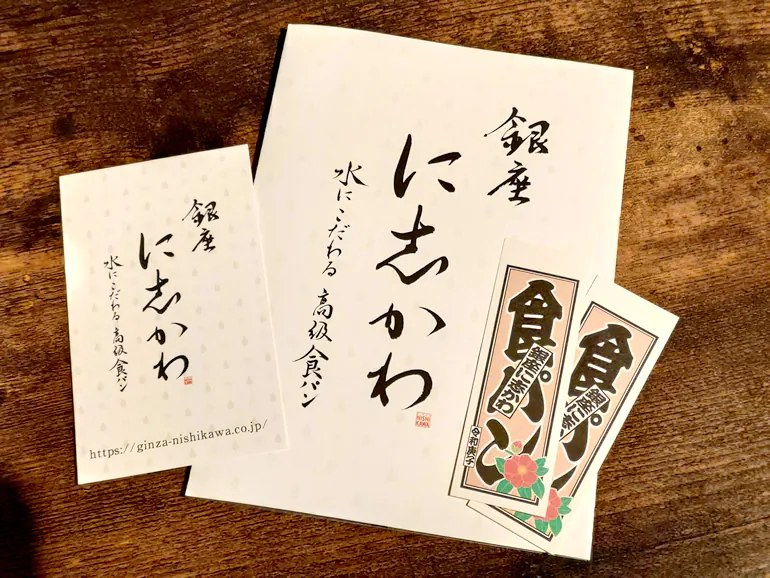 銀座
に志かわ
水にこだわる高級食パン
https://ginza-nishikawa.co.jp/
銀座
に志かわ
水にこだわる高級食パン
NISHI
KAWA
食パン
銀座に志かわ
令和庚子
食パ
銀座に志